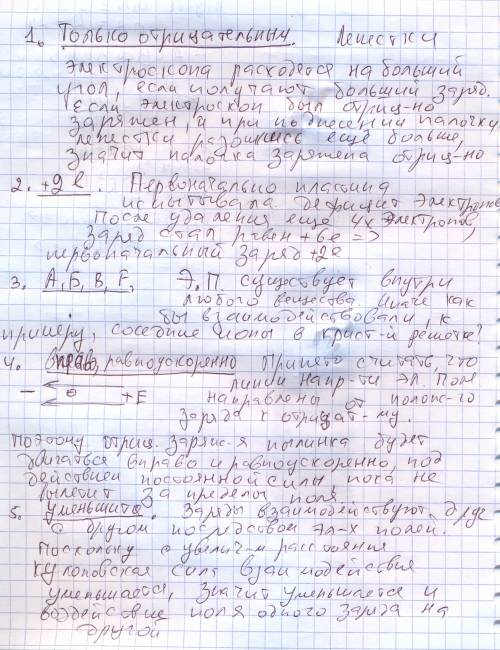 1. Только отрицательным. Лепестки
электроскопа расходятся на больший
угол, если получают больший заряд.
Если электроскоп был отриц-но
заряжен, и при поднесении палочки
лепестки разошлись ещё больше,
значит палочка заряжена отриц-но
2. +2е. Первоначально пластина
испытывала дефицит электронов
После удаления ещё 4х электронов,
заряд стал равен +6е =>
первоначальный заряд +2е.
3. А, Б, В, Г, Э.П. существует внутри
любого вещества. Иначе как
бы взаимодействовали, к
примеру, соседние ионы в крист-й решотке?
4. вправо, равноускоренно Принято считать, что
линии напр-ти эл. поля
направлены от полож-го
заряда к отрицат-му.
− е +Е
Поэтому отриц. заряж-я пылинка будет
двигаться вправо и равноускоренно, под
действием постоянной силы, пока не
вылетит за пределы поля.
5. уменьшится. Заряды взаимодействуют друг
с другом посредством эл-х полей.
Поскольку с увелич-м расстояния
кулоновская сила взаимодействия
уменьшается, значит уменьшается и
воздействие поля одного заряда на
другой